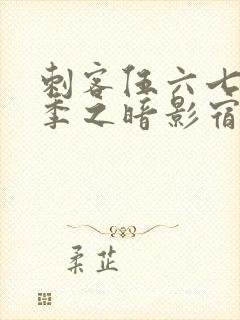 刺客伍六七
季之暗影宿
柔芷